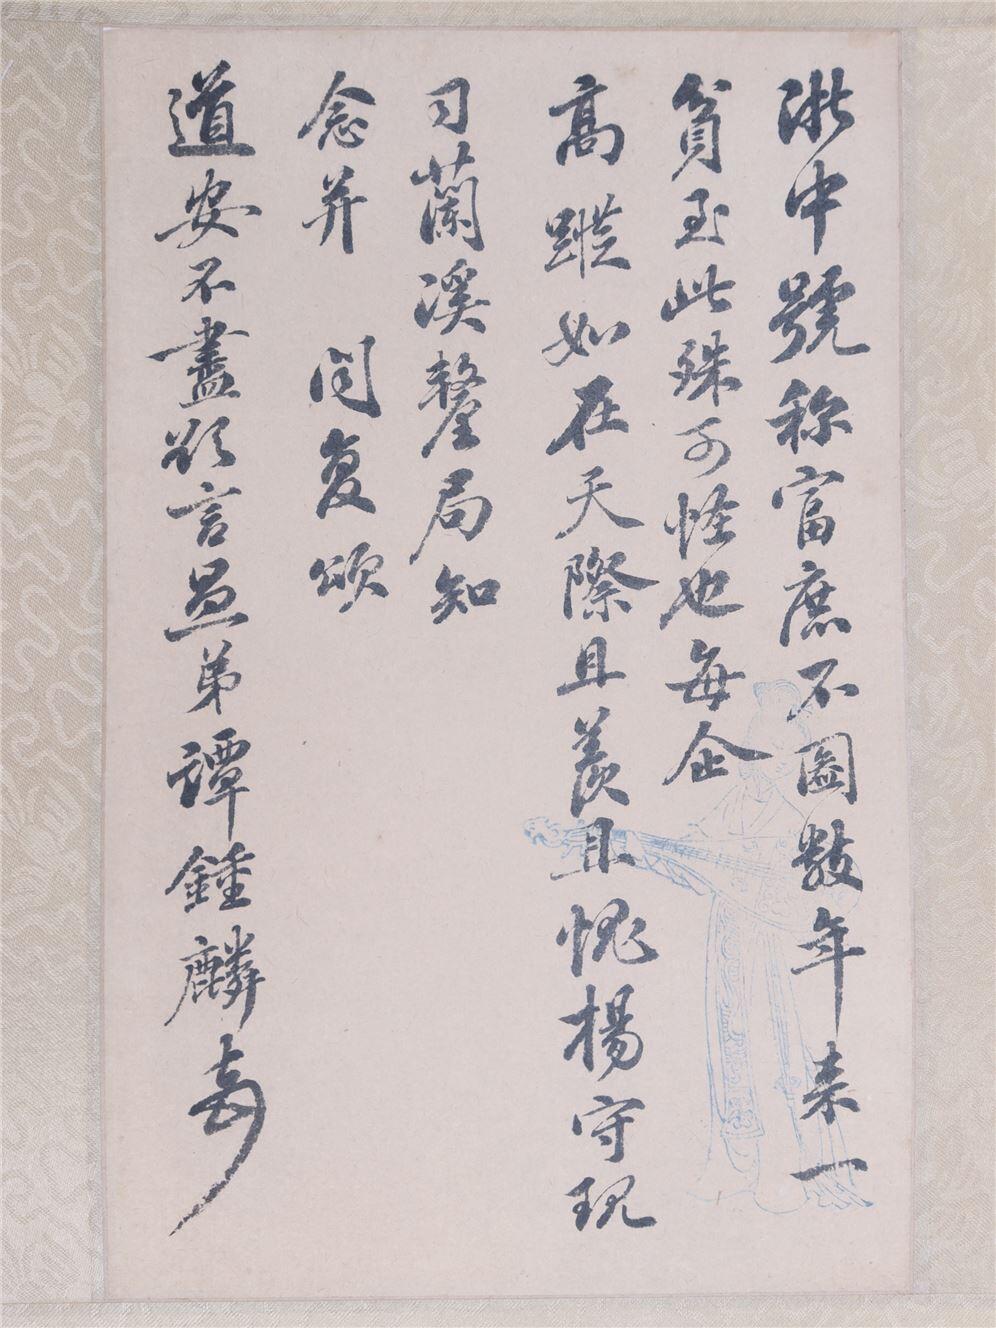 浙中號称富庶不圖數年来一
貧至此殊可怪也每企
高蹤如在天際且羨且愧楊守現
司蘭溪釐局知
念并聞复頌
道安不盡欲言愚弟譚鍾麟頓